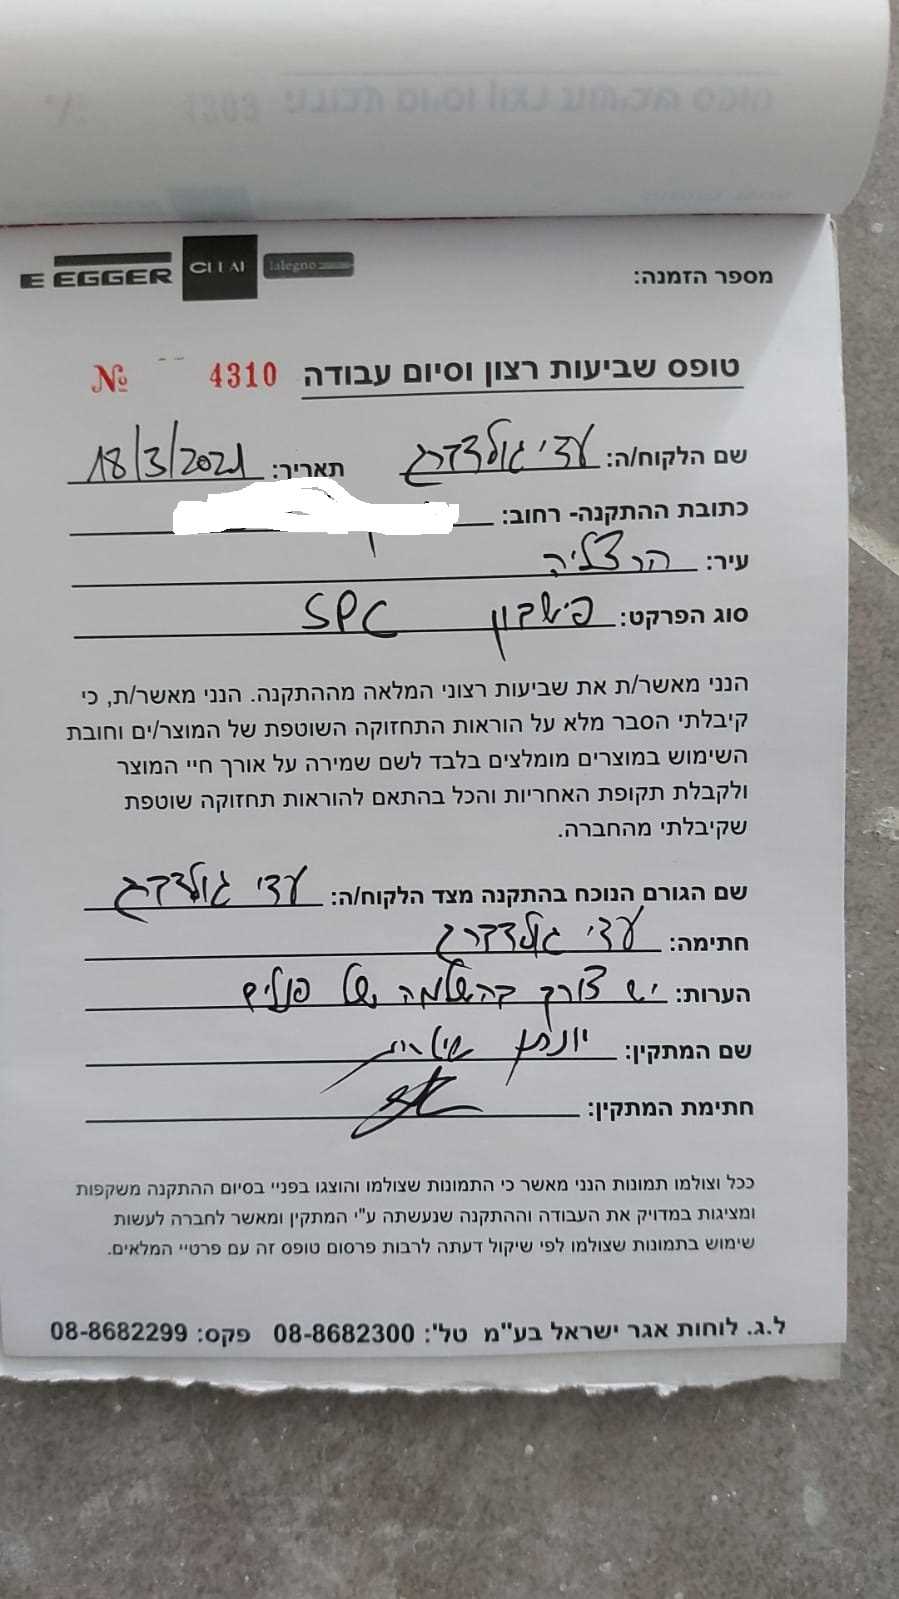 E EGGER CLEAF lalegno
מספר הזמנה:
טופס שביעות רצון וסיום עבודה 4310 №
שם הלקוח/ה: עדי גולדברג תאריך: 18/3/2021
כתובת ההתקנה- רחוב:
עיר: הרצליה
סוג הפרקט: פישבון SPC
הנני מאשר/ת את שביעות רצוני המלאה מההתקנה. הנני מאשר/ת, כי
קיבלתי הסבר מלא על הוראות התחזוקה השוטפת של המוצר/ים וחובת
השימוש במוצרים מומלצים בלבד לשם שמירה על אורך חיי המוצר
ולקבלת תקופת האחריות והכל בהתאם להוראות תחזוקה שוטפת
שקיבלתי מהחברה.
שם הגורם הנוכח בהתקנה מצד הלקוח/ה: עדי גולדברג
חתימה: עדי גולדברג
הערות: יש צורך בהשלמה של פנלים
שם המתקין: יונתן
חתימת המתקין:
ככל וצולמו תמונות הנני מאשר כי התמונות שצולמו והוצגו בפניי בסיום ההתקנה משקפות
ומציגות במדויק את העבודה וההתקנה שנעשתה ע"י המתקין ומאשר לחברה לעשות
שימוש בתמונות שצולמו לפי שיקול דעתה לרבות פרסום טופס זה עם פרטיי המלאים.
ל.ג. לוחות אגר ישראל בע"מ טל': 08-8682300 פקס: 08-8682299